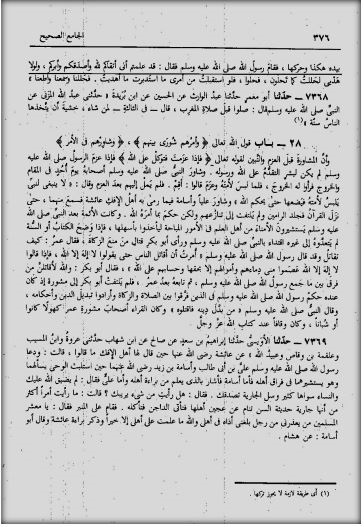 ٣٧٦ الجامع الصحيح
بيده هكذا وحركها ، فقام رسول الله صلى الله عليه وسلم فقال : قد علمتم أنى أتقاكم لله وأصدقكم وأبركم ، ولولا
هديى لحللت كما تحلون ، فحلوا ، فلو استقبلت من أمرى ما استدبرت ما أهديت . فحللنا وسمعنا وأطعنا »
٧٣٦٨ – حدثنا أبو معمر حدثنا عبد الوارث عن الحسين عن ابن بريدة « حدثنى عبد الله المزنى عن
النبى صلى الله عليه وسلم قال : صلوا قبل صلاة المغرب ، قال – فى الثالثة – لمن شاء ، خشية أن يتخذها
الناس سنة » (١)
٢٨ – باب قول الله تعالى ﴿ وأمرهم شورى بينهم ﴾ ، ﴿ وشاورهم فى الأمر ﴾
وأن المشاورة قبل العزم والتبين لقوله تعالى ﴿ فإذا عزمت فتوكل على الله ﴾ فإذا عزم الرسول صلى الله عليه
وسلم لم يكن لبشر التقدم على الله ورسوله . وشاور النبى صلى الله عليه وسلم أصحابه يوم أحد فى المقام
والخروج فرأوا له الخروج ، فلما لبس لأمته وعزم قالوا : أقم . فلم يمل إليهم بعد العزم وقال : « لا ينبغى لنبى
يلبس لأمته فيضعها حتى يحكم الله » وشاور عليا وأسامة فيما رمى به أهل الإفك عائشة فسمع منهما ، حتى
نزل القرآن فجلد الرامين ولم يلتفت إلى تنازعهم ولكن حكم بما أمره الله . وكانت الأئمة بعد النبى صلى الله
عليه وسلم يستشيرون الأمناء من أهل العلم فى الأمور المباحة ليأخذوا بأسهلها ، فإذا وضح الكتاب أو السنة
لم يتعدوه إلى غيره اقتداء بالنبى صلى الله عليه وسلم ورأى أبو بكر قتال من منع الزكاة ، فقال عمر : كيف
تقاتل وقد قال رسول الله صلى الله عليه وسلم « أمرت أن أقاتل الناس حتى يقولوا لا إله إلا الله ، فإذا قالوا
لا إله إلا الله عصموا منى دماءهم وأموالهم إلا بحقها وحسابهم على الله » ، فقال أبو بكر : والله لأقاتلن من
فرق بين ما جمع رسول الله صلى الله عليه وسلم ، ثم تابعه بعد عمر . فلم يلتفت أبو بكر إلى مشورة إذ كان
عنده حكم رسول الله صلى الله عليه وسلم فى الذين فرقوا بين الصلاة والزكاة وأرادوا تبديل الدين وأحكامه ،
وقال النبى صلى الله عليه وسلم « من بدل دينه فاقتلوه » وكان القراء أصحاب مشورة عمر كهولا كانوا
أو شبانا ، وكان وقافا عند كتاب الله عز وجل
٧٣٦٩ – حدثنا الأويسى حدثنا إبراهيم بن سعد عن صالح عن ابن شهاب حدثنى عروة وابن المسيب
وعلقمة بن وقاص وعبيد الله « عن عائشة رضى الله عنها حين قال لها أهل الإفك ما قالوا ، قالت : ودعا
رسول الله صلى الله عليه وسلم على بن أبى طالب وأسامة بن زيد رضى الله عنهما حين استلبث الوحى يسألهما
وهو يستشيرهما فى فراق أهله فأما أسامة فأشار بالذى يعلم من براءة أهله وأما على فقال : لم يضيق الله عليك
والنساء سواها كثير وسل الجارية تصدقك . فقال : هل رأيت من شىء يريبك ؟ قالت : ما رأيت أمرا أكثر
من أنها جارية حديثة السن تنام عن عجين أهلها فتأتى الداجن فتأكله . فقام على المنبر فقال : يا معشر
المسلمين من يعذرنى من رجل بلغنى أذاه فى أهلى والله ما علمت على أهلى إلا خيرا وذكر براءة عائشة وقال أبو
أسامة : عن هشام .
(١) أى طريقة لازمة لا يجوز تركها .